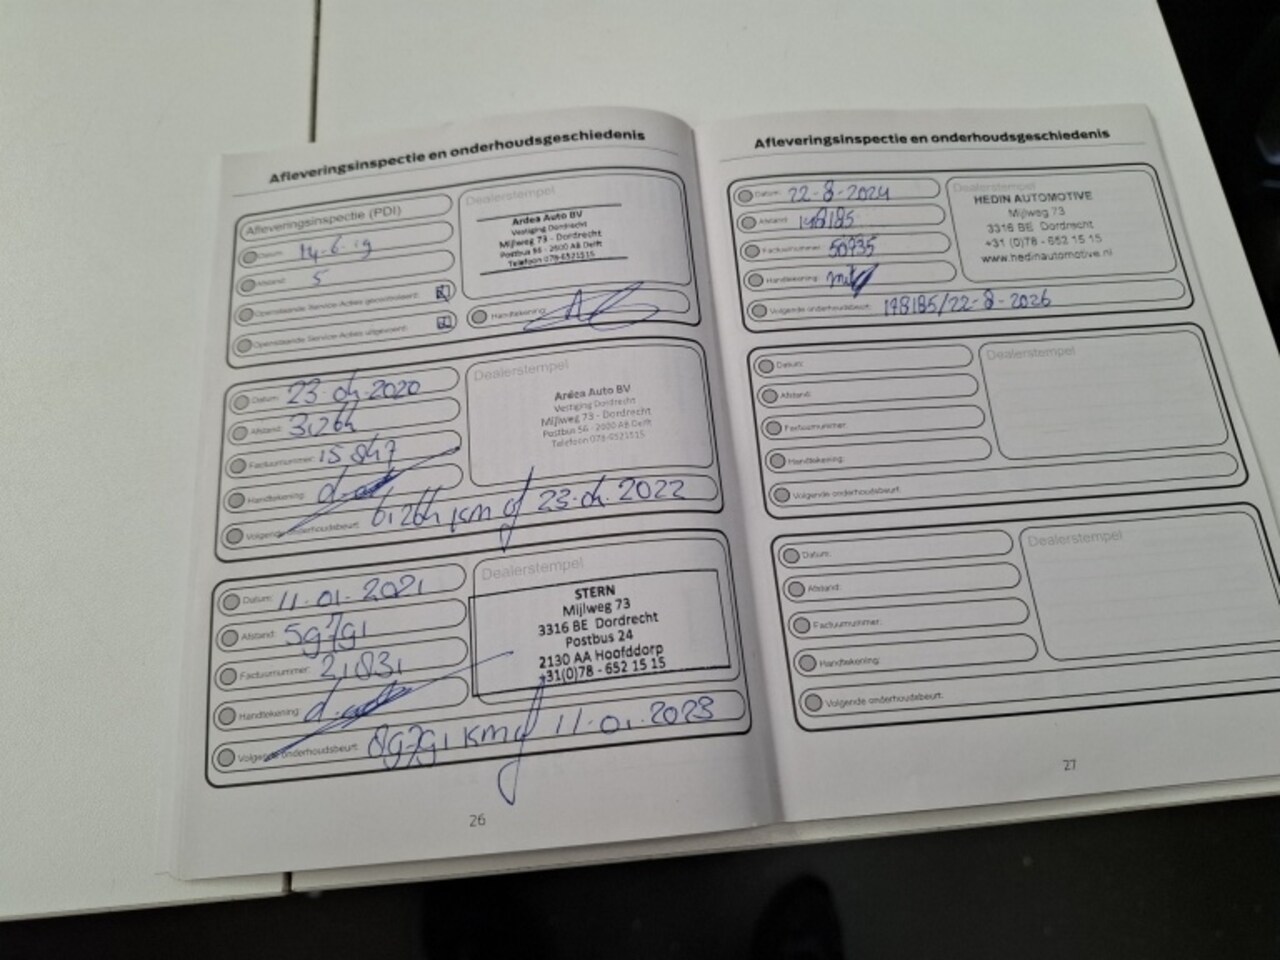 Afleveringsinspectie en onderhoudsgeschiedenis
Afleveringsinspectie (PDI)
Datum: 14-6-19
Afstand: 5
Openstaande Service-Acties gecontroleerd:
Openstaande Service-Acties uitgevoerd:
Dealerstempel
Ardea Auto BV
Vestiging Dordrecht
Mijlweg 73 - Dordrecht
Postbus 56 - 2600 AB Delft
Telefoon 078-6521515
Handtekening:
Datum: 23-04-2020
Afstand:
Factuurnummer:
Handtekening:
Volgende onderhoudsbeurt: km of 23-04-2022
Dealerstempel
Ardea Auto BV
Vestiging Dordrecht
Mijlweg 73 - Dordrecht
Postbus 56 - 2600 AB Delft
Telefoon 078-6521515
Datum: 11-01-2021
Afstand: 59791
Factuurnummer:
Handtekening:
Volgende onderhoudsbeurt: 89791 km of 11-01-2023
Dealerstempel
STERN
Mijlweg 73
3316 BE Dordrecht
Postbus 24
2130 AA Hoofddorp
+31(0)78 - 652 15 15
26
Afleveringsinspectie en onderhoudsgeschiedenis
Datum: 22-8-2024
Afstand: 148185
Factuurnummer: 50735
Handtekening:
Volgende onderhoudsbeurt: 198185/22-8-2026
Dealerstempel
HEDIN AUTOMOTIVE
Mijlweg 73
3316 BE Dordrecht
+31 (0)78 - 652 15 15
www.hedinautomotive.nl
Datum:
Afstand:
Factuurnummer:
Handtekening:
Volgende onderhoudsbeurt:
Dealerstempel
Datum:
Afstand:
Factuurnummer:
Handtekening:
Volgende onderhoudsbeurt:
Dealerstempel
27